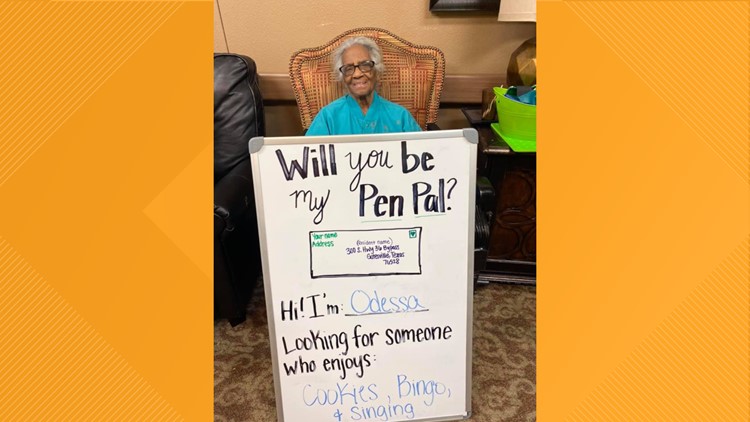 Will you be
my Pen Pal?
Your name
Address
(Resident name)
300 S. Hwy 36 Bypass
Gatesville, Texas
76528
Hi! I'm: Odessa
Looking for someone
who enjoys:
Cookies, Bingo,
& Singing